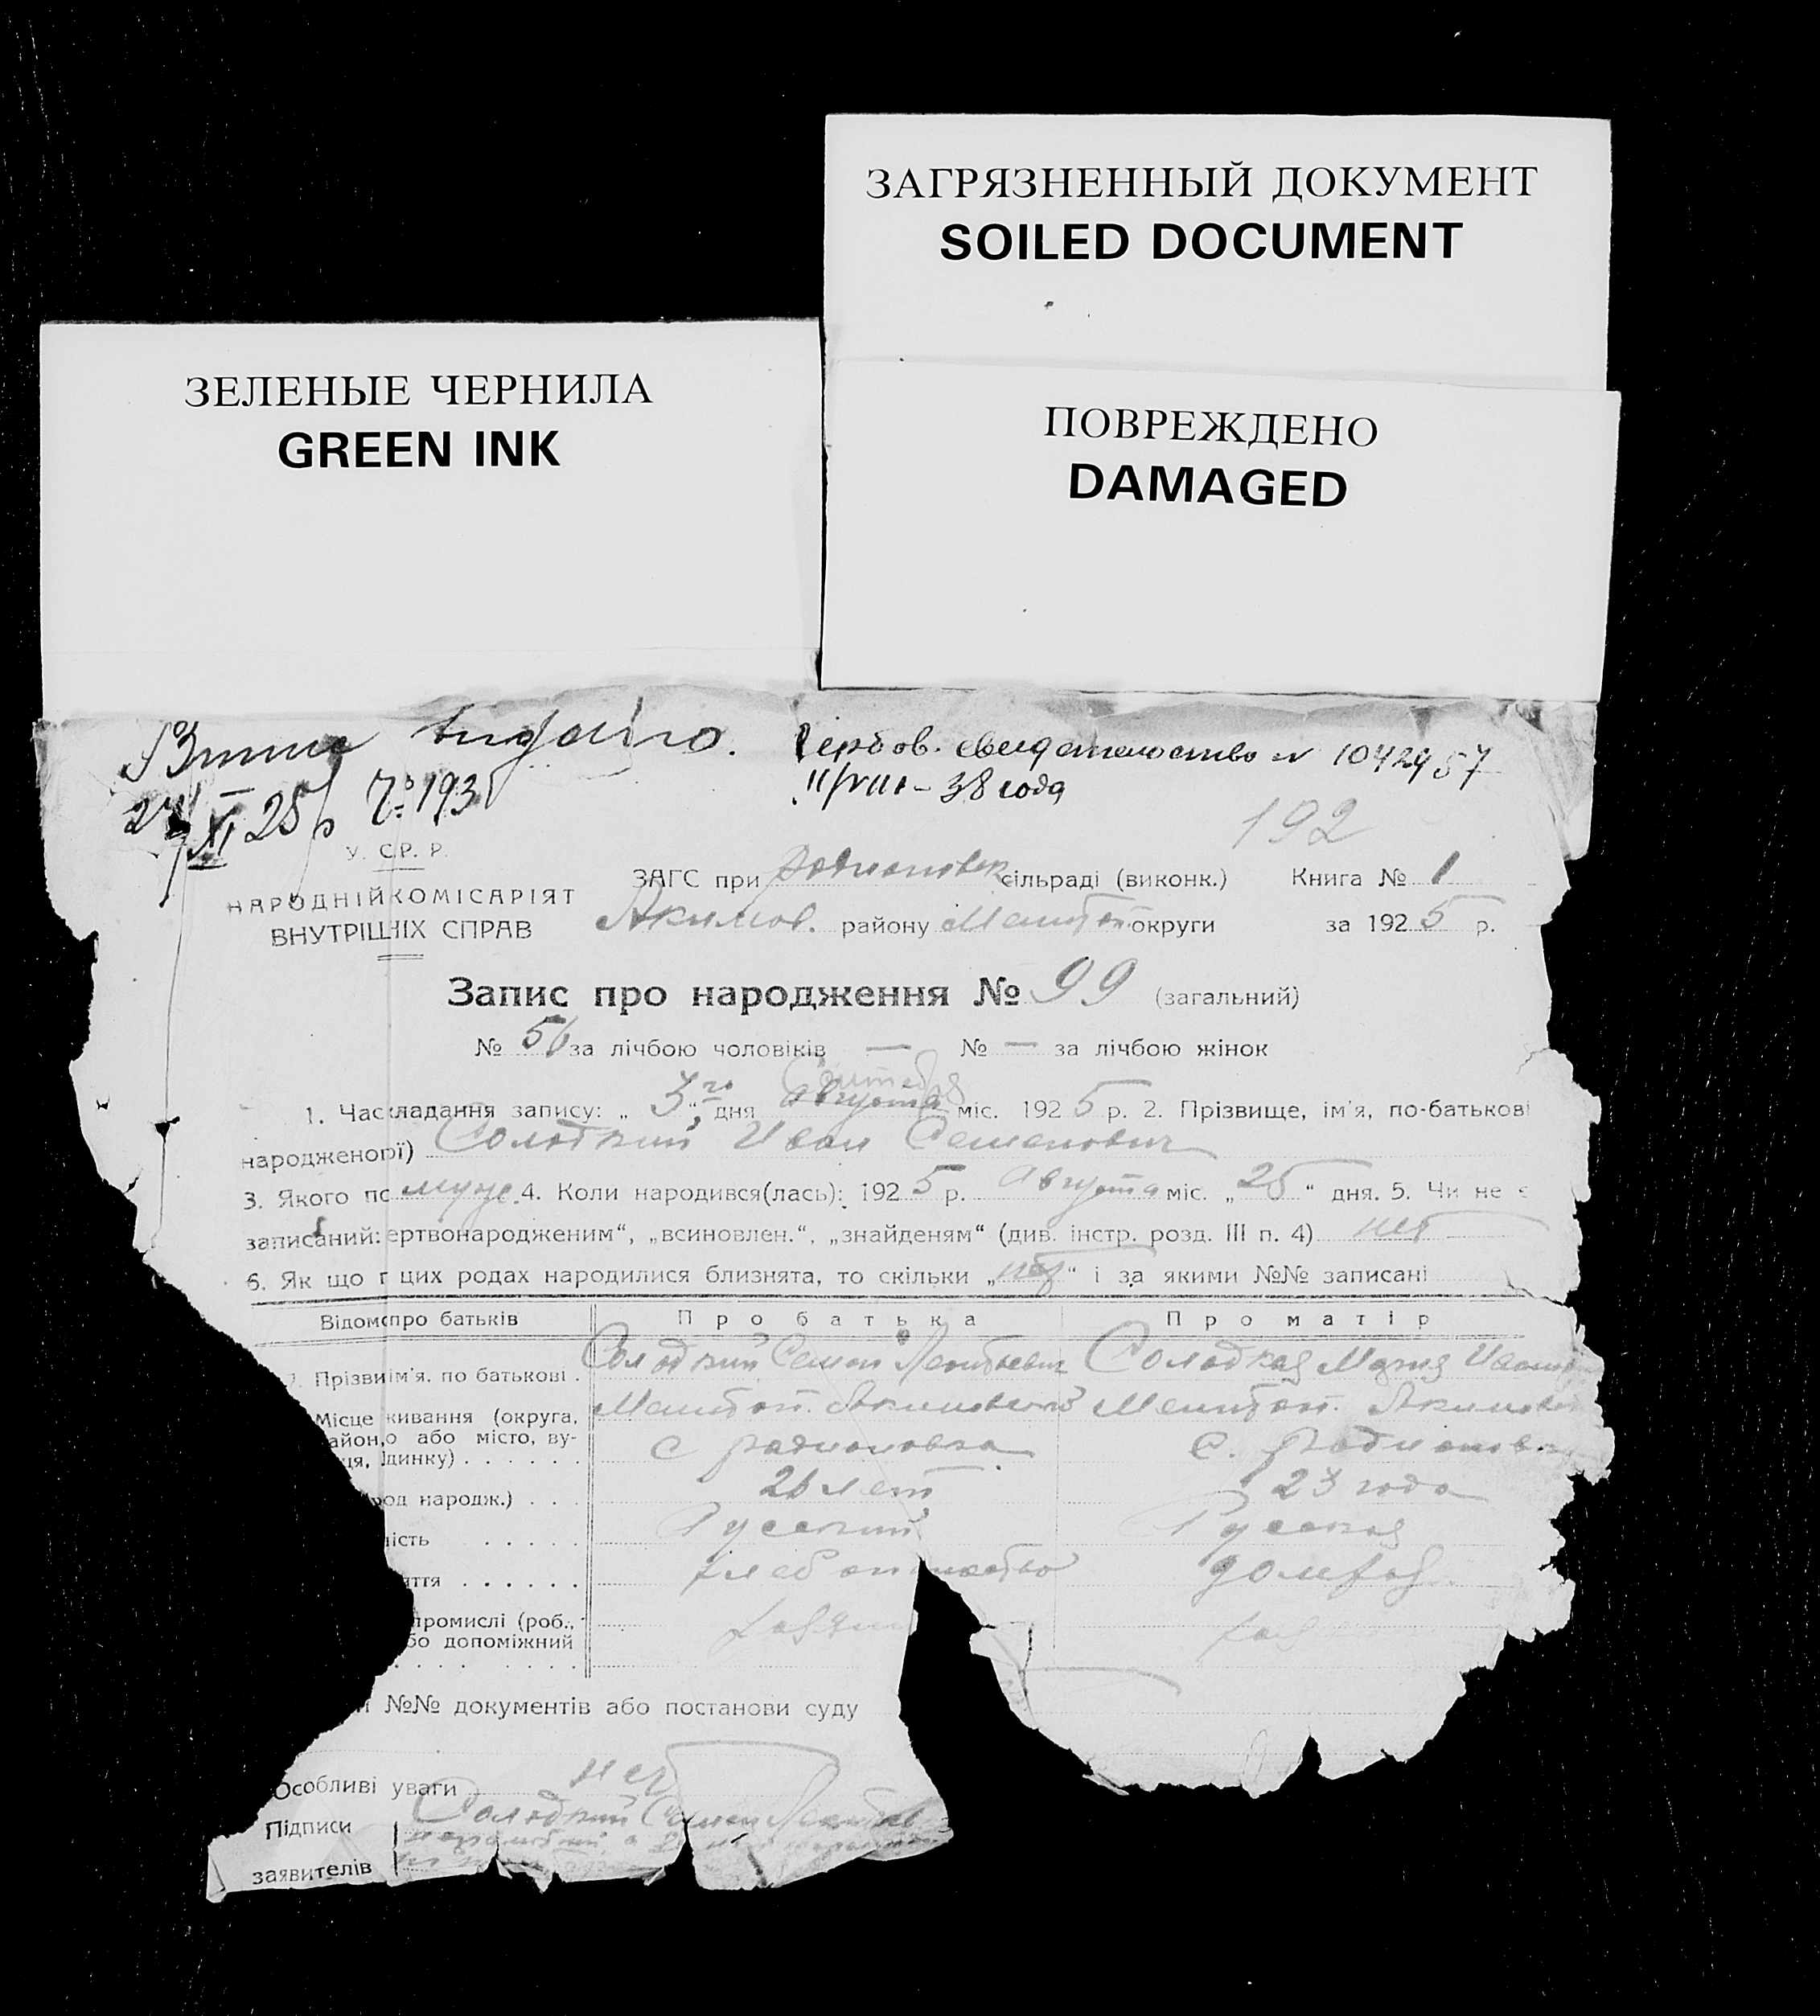 ЗАГРЯЗНЕННЫЙ ДОКУМЕНТ
SOILED DOCUMENT
ЗЕЛЕНЫЕ ЧЕРНИЛА
GREEN INK
ПОВРЕЖДЕНО
DAMAGED
Гербов. свидетельство №
11/VIII – 38 года
192
У. С.Р. Р.
НАРОДНІЙ КОМІСАРІЯТ
ВНУТРІШНІХ СПРАВ
ЗАГС при Родионовск сільраді (виконк.) Книга № 1
Акимов. району Мелитоп. округи за 1925 р.
Запис про народження № 99 (загальний)
№ 56 за лічбою чоловіків — № — за лічбою жінок
Сентября
1. Час складання запису: „3го“ дня августа міс. 1925 р. 2. Прізвище, ім'я, по-батькові
народженого(ї) Солодкий Иван Семенович
3. Якого по муж. 4. Коли народився(лась): 1925 р. Августа міс. „25“ дня. 5. Чи не є
записаний: ертвонародженим“, „всиновлен.“, „знайденям“ (див. інстр. розд. III п. 4) нет
6. Як що п цих родах народилися близнята, то скільки „нет“ і за якими №№ записані
Відомо про батьків Про батька Про матір
Прізви ім'я. по батькові . Солодкий Семен Леонтьевич Солодкая Мария Иван
Місце живання (округа, Мелитоп. Акимовский Мелитоп. Акимов
айон, о або місто, ву-
ця, динку) . . . . . . с Родионовка С. Родионовк
од народж.) . . . 26 лет 23 года
ість . . . . . Русский Русская
яття . . . . . . хлебопашество домхоз
промислі (роб.,
бо допоміжний
№№ документів або постанови суду
Особливі уваги нет
Підписи Солодкий Семен Леонтьев
заявителів